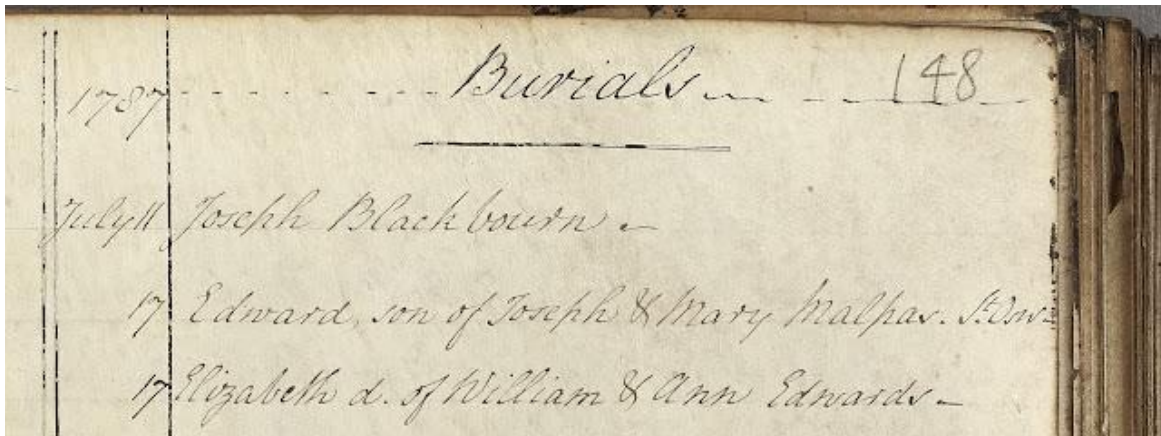 1787 Burials 148
July 11 Joseph Blackbourn
17 Edward, son of Joseph & Mary Malpas. St. Osw-
17 Elizabeth d. of William & Ann Edwards